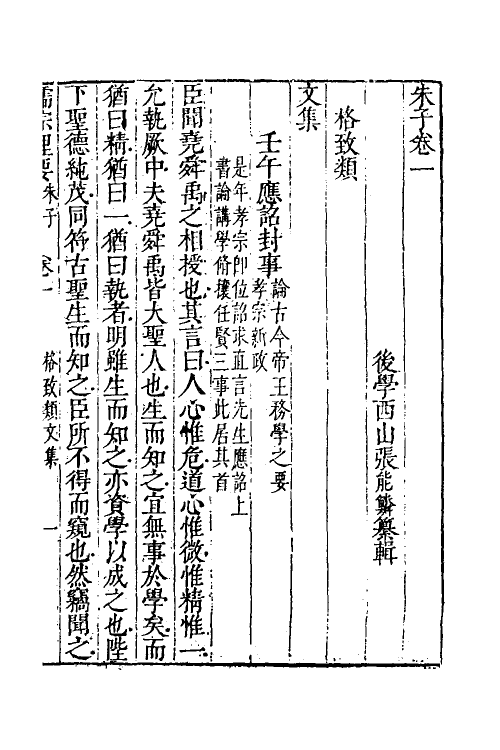 朱子卷一
後學西山張能鱗纂輯
格致類
文集
壬午應詔封事論古今帝王務學之要
孝宗新政
是年孝宗卽位詔求直言先生應詔上
書論講學脩攘任賢三事此居其首
臣聞堯舜禹之相授也其言曰人心惟危道心惟微惟精惟一
允執厥中夫堯舜禹皆大聖人也生而知之宜無事於學矣而
猶曰精猶曰一猶曰執者明雖生而知之亦資學以成之也陛
下聖德純茂同符古聖生而知之臣所不得而窺也然竊聞之
儒宗理要朱子 卷一 格致類文集 一